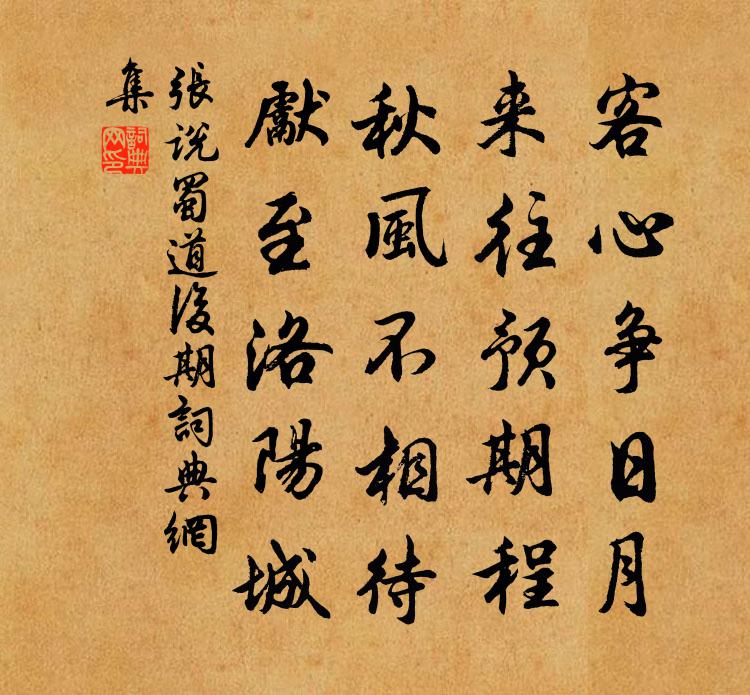 客心争日月
来往预期程
秋風不相待
獻至洛陽城
張说蜀道後期詞典網
集
詞典
网印